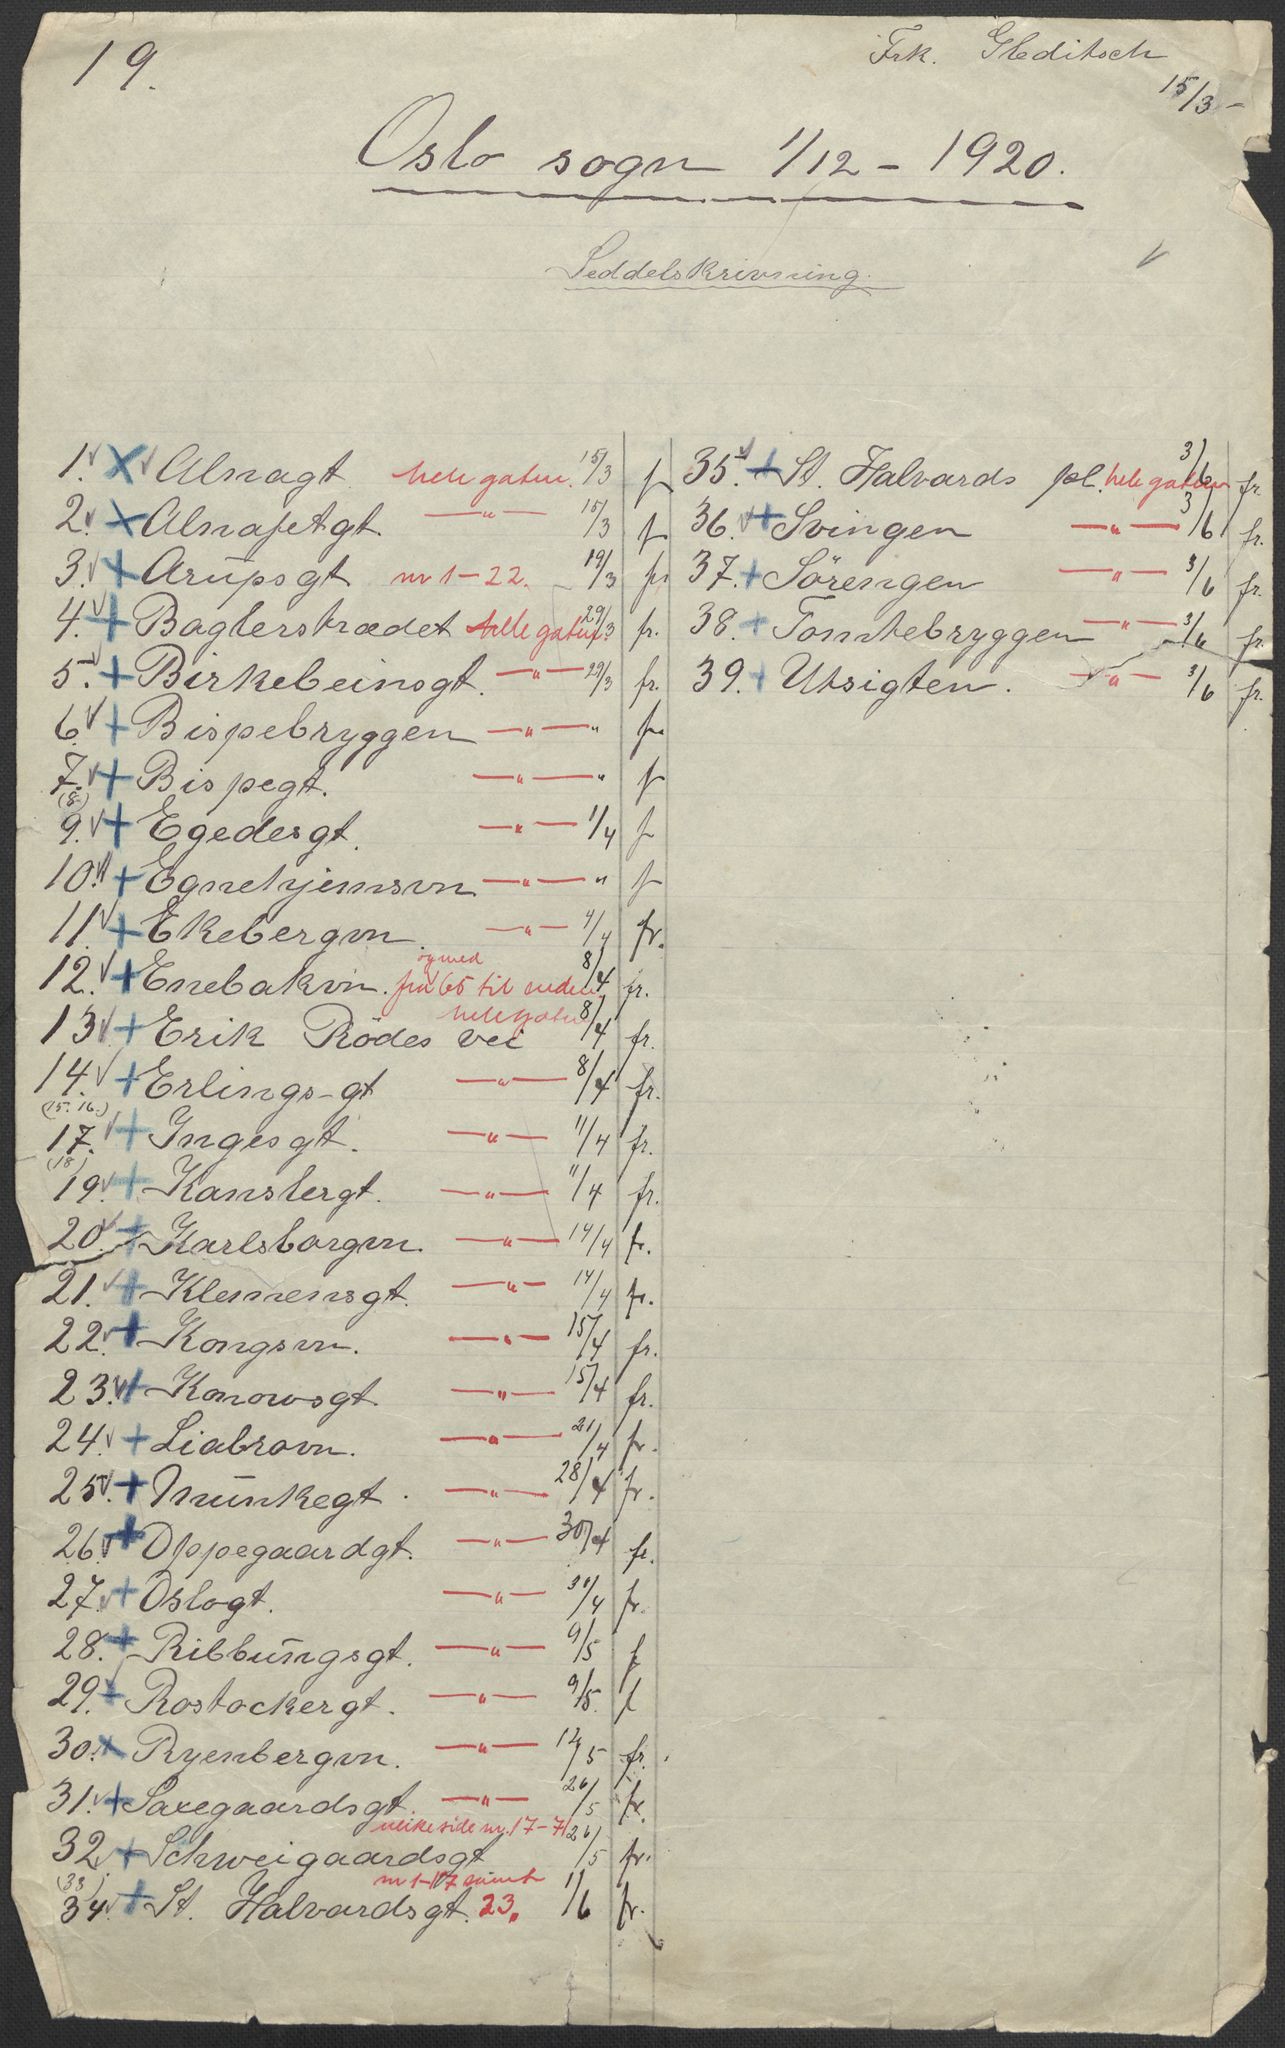 19.
Frk. Gleditsch
15/3 -
Oslo sogn 1/12 - 1920.
Seddelskrivning.
1. Alnagt. hele gaten. 15/3 f
2. Alnafetgt. —"— 15/3 f
3. Arupsgt nr 1-22. 19/3 fr
4. Baglerstrædet hele gaten 29/3 fr.
5. Birkebeinsgt. —"— 29/3 fr.
6. Bispebryggen —"— " fr
7. Bispegt. —"— " f
(8.)
9. Egedesgt. —"— 1/4 f
10. Egnehjemsvn —"— " f
11. Ekebergvn. —"— 4/4 fr.
12. Enebakvn. fra og med 65 til enden 8/4 fr.
13. Erik Rödes vei hele gaten 8/4 fr.
14. Erlings-gt —"— 8/4 fr.
(15. 16.)
17. Ingesgt. —"— 11/4 fr.
(18)
19. Kanslergt. —"— 11/4 fr.
20. Karlsborgvn. —"— 14/4 fr.
21. Klemensgt. —"— 14/4 fr.
22. Kongsvn. —"— 15/4 fr.
23. Konowsgt. —"— 15/4 fr.
24. Liabrovn. —"— 21/4 fr.
25. Munkegt. —"— 28/4 fr.
26. Oppegaardgt. —"— 30/4 fr.
27. Oslogt. —"— 30/4 fr.
28. Ribbungsgt. —"— 9/5 f
29. Rostockergt. —"— 9/5. f
30. Ryenbergvn. —"— 12/5 fr.
31. Saxegaardsgt. —"— 26/5 fr.
32. Schweigaardsgt ulike side nr. 17-71 26/5 fr.
(33)
34. St. Halvardsgt. nr 1-17 samt 23. 1/6 fr.
35. St. Halvards pl. hele gaten 3/6 fr.
36. Svingen —"— 3/6 fr.
37. Sörengen —"— 3/6 fr.
38. Tomtebryggen —"— 3/6 fr.
39. Utsigten. —"— 3/6 fr.